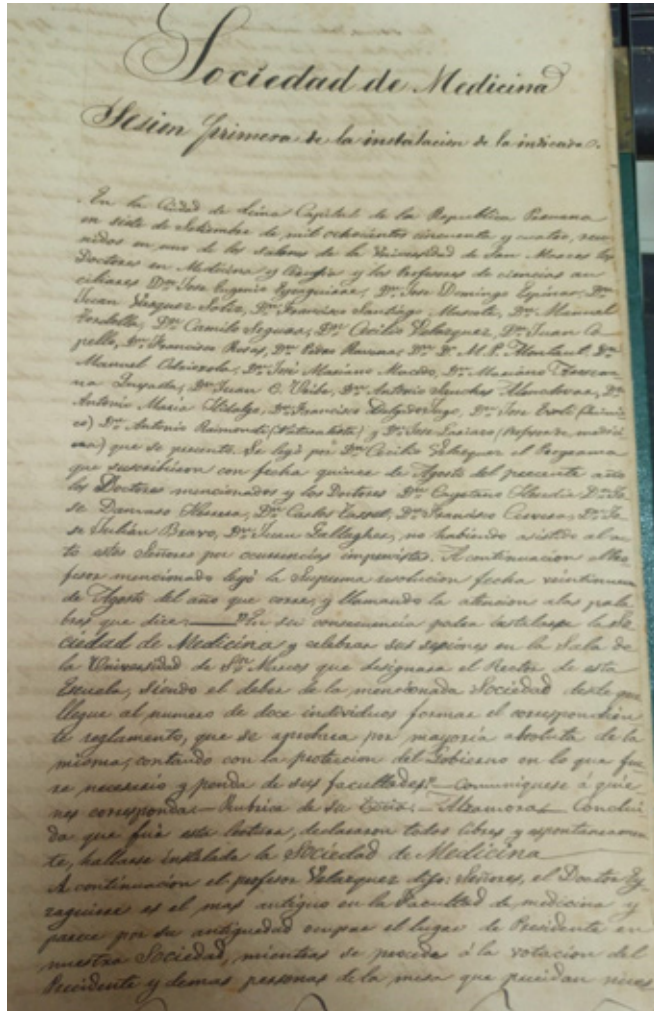 Sociedad de Medicina
Sesion primera de la instalacion de la indicada.
En la Ciudad de Lima Capital de la Republica Peruana
en siete de Setiembre de mil ochocientos cincuenta y cuatro, reu
nidos en uno de los salones de la Universidad de San Marcos los
Doctores en Medicina y Cirugia y los Profesores de ciencias au
ciliares Dn. Jose Eugenio Eyzaguirre, Dn. Jose Domingo Espinar, Dn.
Juan Vazquez Solis, Dn. Francisco Santiago Dn. Manuel
Dn. Camilo Segura, Dn. Cecilio Velazquez, Dn. Juan C
pello, Dn. Francisco Rosas, Dn. Pedro Dn. Dr. M. P. Dn.
Manuel Odriozola, Dn. José Mariano Macedo, Dn. Mariano
Dn. Juan C. Dn. Antonio Sanchez Almodovar, Dn.
Antonio Maria Hidalgo, Dn. Francisco Dn. Jose Eboli (Quimi
co) Dn. Antonio Raimondi (Naturalista) y Dn. Jose (Profesor de medici
na) que se presentó. Se leyó por Dn. Cecilio Velazquez el Programa
que suscribieron con fecha quince de Agosto del presente año
los Doctores mencionados y los Doctores Dn. Cayetano Heredia Dn. Jo
se Dn. Carlos Dn. Francisco Dn. Jo
se Julián Bravo, Dn. Juan Gallagher, no habiendo asistido al ac
to estos Señores por ocurrencias imprevistas. A continuacion el Pro
fesor mencionado leyó la Suprema resolucion fecha veintinueve
de Agosto del año que corre, y llamando la atencion a las pala
bras que dice: "En su consecuencia podra instalarse la So
ciedad de Medicina y celebrar sus sesiones en la Sala de
la Universidad de Sn. Marcos que designara el Rector de esta
Escuela, siendo el deber de la mencionada Sociedad desde que
llegue al numero de doce individuos formar el correspondien
te reglamento, que se aprobara por mayoria absoluta de la
misma, contando con la proteccion del Gobierno en lo que fue
re necesario y penda de sus facultades" — Comuniquese á quie
nes corresponda — Rubrica de su — Conclui
da que fué esta lectura, declararon todos libres y espontaneamen
te, hallarse instalada la Sociedad de Medicina
A continuacion el profesor Velazquez dijo: Señores, el Doctor Ey
zaguirre es el mas antiguo en la Facultad de medicina y
parece por su antiguedad ocupar el lugar de Presidente en
nuestra Sociedad, mientras se procede á la votacion del
Presidente y demas personas de la mesa que presidan